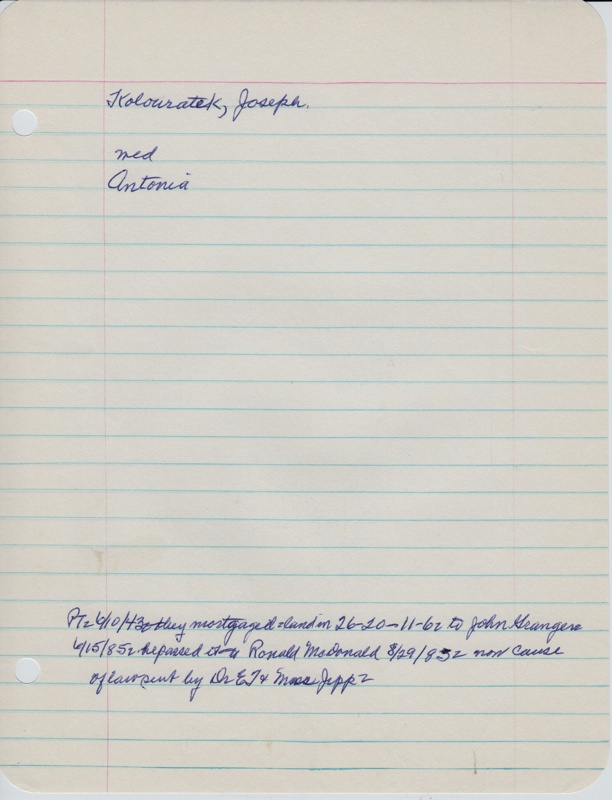 Kolouratek, Joseph.
med
Antonia
6/10/43 they mortgaged land in 26-20-11-6 to John Granger
6/15/85 he passed it Ronald McDonald 8/29/85 now cause
of lawsuit by Dr E T & Jepp